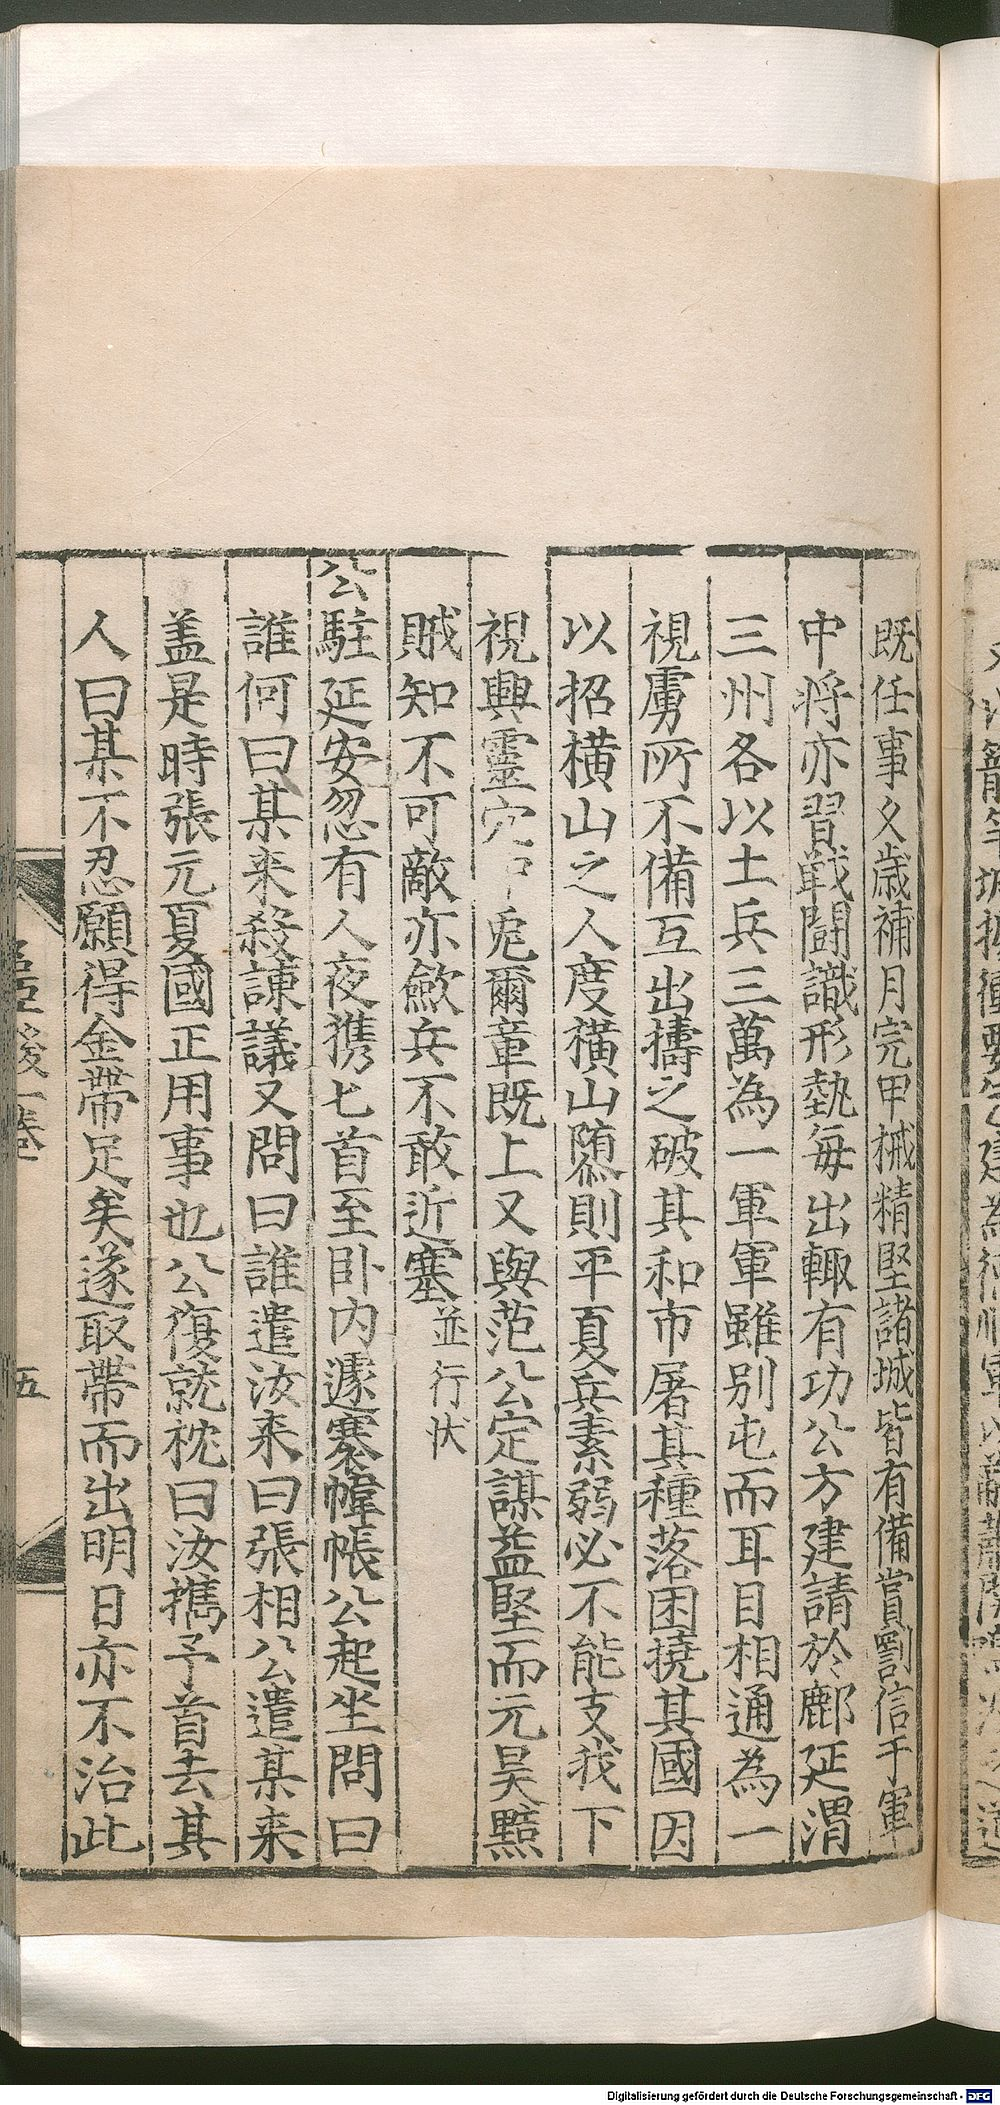 既任事久歲補月完甲械精堅諸城皆有備賞罰信于軍
中将亦習戰鬪識形埶每出輙有功公方建請於鄜延渭
三州各以土兵三萬為一軍軍雖别屯而耳目相通為一
視虜所不備互出擣之破其和市屠其種落困撓其國因
以招横山之人度横山隳則平夏兵素弱必不能支我下
視興靈穴中兎爾章既上又與范公定謀益堅而元昊黠
賊知不可敵亦歛兵不敢近塞並行狀
公駐延安忽有人夜携匕首至卧内遽褰幃帳公起坐問曰
誰何曰某来殺諌議又問曰誰遣汝来曰張相公遣某来
盖是時張元夏國正用事也公復就枕曰汝携予首去其
人曰某不忍願得金帶足矣遂取帶而出明日亦不治此
五
Digitalisierung gefördert durch die Deutsche Forschungsgemeinschaft - DFG